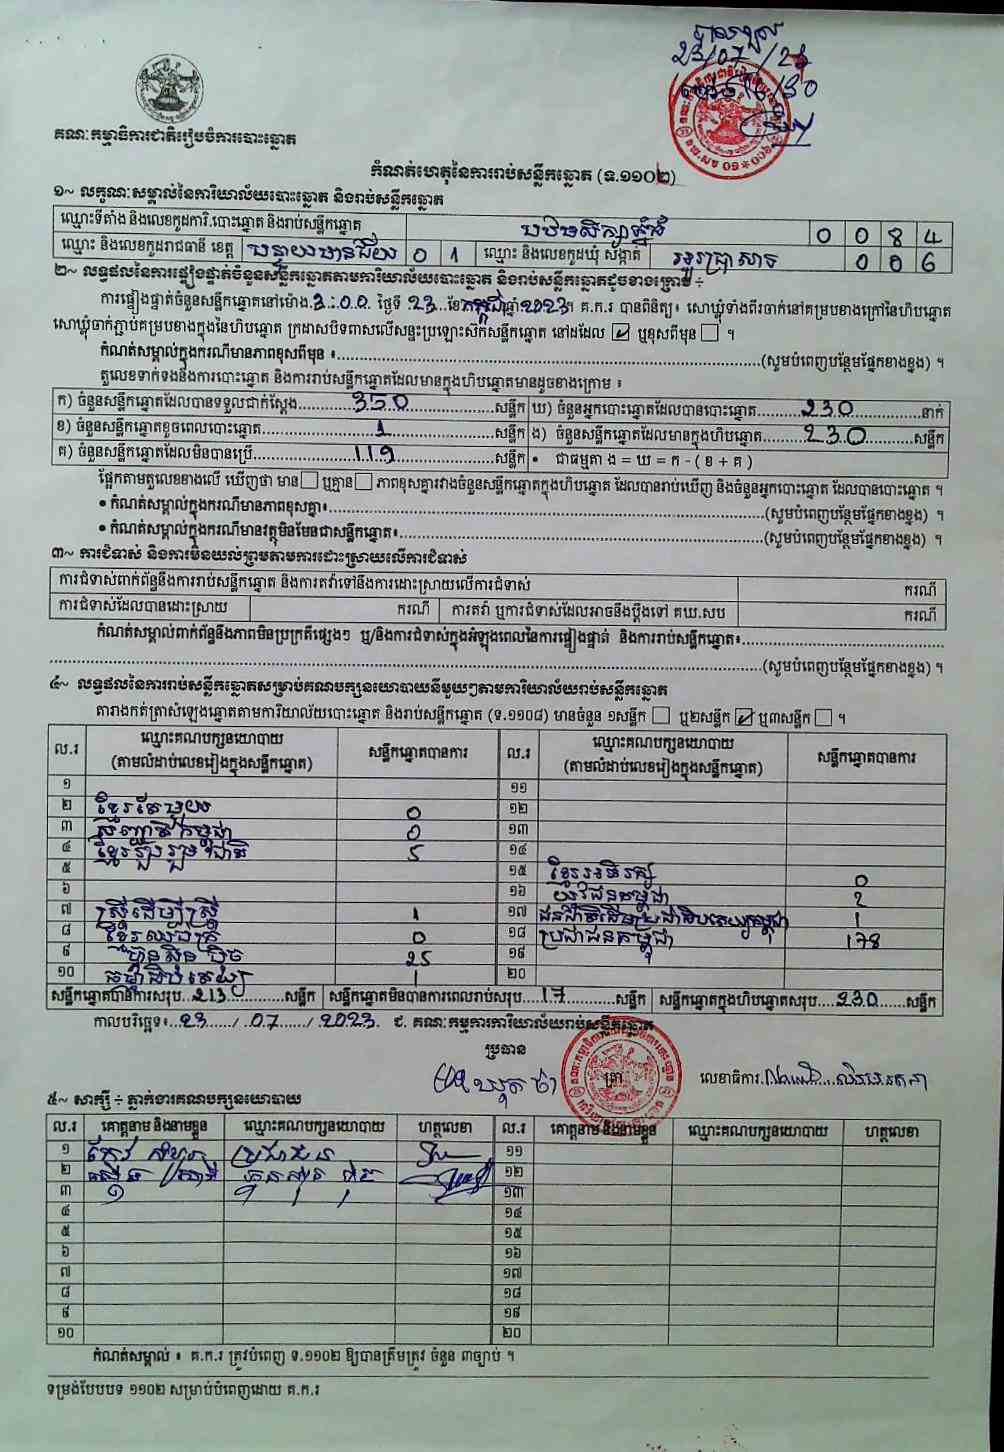 បានឃើញ
23/07/23
គណៈកម្មាធិការជាតិរៀបចំការបោះឆ្នោត
កំណត់ហេតុនៃការរាប់សន្លឹកឆ្នោត (ទ.១១០២)
១~ លក្ខណៈសម្គាល់នៃការិយាល័យបោះឆ្នោត និងរាប់សន្លឹកឆ្នោត
ឈ្មោះទីតាំង និងលេខកូដការិ.បោះឆ្នោត និងរាប់សន្លឹកឆ្នោត 0 0 8 4
ឈ្មោះ និងលេខកូដរាជធានី ខេត្ត បន្ទាយមានជ័យ 0 1 ឈ្មោះ និងលេខកូដឃុំ សង្កាត់ អូរប្រាសាទ 0 0 6
២~ លទ្ធផលនៃការផ្ទៀងផ្ទាត់ចំនួនសន្លឹកឆ្នោតតាមការិយាល័យបោះឆ្នោត និងរាប់សន្លឹកឆ្នោតដូចខាងក្រោម ÷
ការផ្ទៀងផ្ទាត់ចំនួនសន្លឹកឆ្នោតនៅម៉ោង 3:00 ថ្ងៃទី 23 ខែ កក្កដា ឆ្នាំ 2023 ។ គ.ក.រ បានពិនិត្យ៖ សោឃ្លុំទាំងពីរចាក់នៅគម្របខាងក្រៅនៃហិបឆ្នោត
សោឃ្លុំចាក់ភ្ជាប់គម្របខាងក្នុងនៃហិបឆ្នោត ក្រដាសបិទពាសលើសន្ទះប្រឡោះស៊កសន្លឹកឆ្នោត នៅដដែល ☑ ឬខុសពីមុន ☐ ។
កំណត់សម្គាល់ក្នុងករណីមានភាពខុសពីមុន ៖ (សូមបំពេញបន្ថែមផ្នែកខាងខ្នង) ។
តួលេខទាក់ទងនឹងការបោះឆ្នោត និងការរាប់សន្លឹកឆ្នោតដែលមានក្នុងហិបឆ្នោតមានដូចខាងក្រោម ៖
ក) ចំនួនសន្លឹកឆ្នោតដែលបានទទួលជាក់ស្តែង 350 សន្លឹក ឃ) ចំនួនអ្នកបោះឆ្នោតដែលបានបោះឆ្នោត 230 នាក់
ខ) ចំនួនសន្លឹកឆ្នោតខូចពេលបោះឆ្នោត 1 សន្លឹក ង) ចំនួនសន្លឹកឆ្នោតដែលមានក្នុងហិបឆ្នោត 230 សន្លឹក
គ) ចំនួនសន្លឹកឆ្នោតដែលមិនបានប្រើ 119 សន្លឹក • ជាធម្មតា ង = ឃ = ក - ( ខ + គ )
ផ្អែកតាមតួលេខខាងលើ ឃើញថា មាន ☐ ឬគ្មាន ☐ ភាពខុសគ្នារវាងចំនួនសន្លឹកឆ្នោតក្នុងហិបឆ្នោត ដែលបានរាប់ឃើញ និងចំនួនអ្នកបោះឆ្នោត ដែលបានបោះឆ្នោត ។
• កំណត់សម្គាល់ក្នុងករណីមានភាពខុសគ្នា៖ (សូមបំពេញបន្ថែមផ្នែកខាងខ្នង) ។
• កំណត់សម្គាល់ក្នុងករណីមានវត្ថុមិនមែនជាសន្លឹកឆ្នោត៖ (សូមបំពេញបន្ថែមផ្នែកខាងខ្នង) ។
៣~ ការជំទាស់ និងការមិនយល់ព្រមតាមការដោះស្រាយលើការជំទាស់
ការជំទាស់ពាក់ព័ន្ធនឹងការរាប់សន្លឹកឆ្នោត និងការតវ៉ាទៅនឹងការដោះស្រាយលើការជំទាស់ ករណី
ការជំទាស់ដែលបានដោះស្រាយ ករណី ការតវ៉ា ឬការជំទាស់ដែលអាចនឹងប្តឹងទៅ គឃ.សប ករណី
កំណត់សម្គាល់ពាក់ព័ន្ធនឹងភាពមិនប្រក្រតីផ្សេងៗ ឬ/និងការជំទាស់ក្នុងអំឡុងពេលនៃការផ្ទៀងផ្ទាត់ និងការរាប់សន្លឹកឆ្នោត៖
(សូមបំពេញបន្ថែមផ្នែកខាងខ្នង) ។
៤~ លទ្ធផលនៃការរាប់សន្លឹកឆ្នោតសម្រាប់គណបក្សនយោបាយនីមួយៗតាមការិយាល័យរាប់សន្លឹកឆ្នោត
តារាងកត់ត្រាសំឡេងឆ្នោតតាមការិយាល័យបោះឆ្នោត និងរាប់សន្លឹកឆ្នោត (ទ.១១០៨) មានចំនួន ១សន្លឹក ☐ ឬ២សន្លឹក ☑ ឬ៣សន្លឹក ☐ ។
ល.រ ឈ្មោះគណបក្សនយោបាយ (តាមលំដាប់លេខរៀងក្នុងសន្លឹកឆ្នោត) សន្លឹកឆ្នោតបានការ ល.រ ឈ្មោះគណបក្សនយោបាយ (តាមលំដាប់លេខរៀងក្នុងសន្លឹកឆ្នោត) សន្លឹកឆ្នោតបានការ
១ ១១
២ ខ្មែរតែមួយ 0 ១២
៣ សញ្ជាតិកម្ពុជា 0 ១៣
៤ ខ្មែររួបរួមជាតិ 5 ១៤
៥ ១៥ ខ្មែរអភិរក្ស 0
៦ ១៦ យុវជនកម្ពុជា 2
៧ ស្ត្រីដើម្បីស្ត្រី 1 ១៧ ជនជាតិដើមប្រជាធិបតេយ្យកម្ពុជា 1
៨ 0 ១៨ ប្រជាជនកម្ពុជា 178
៩ ហ៊្វុនស៊ិនប៉ិច 25 ១៩
១០ 1 ២០
សន្លឹកឆ្នោតបានការសរុប 213 សន្លឹក សន្លឹកឆ្នោតមិនបានការពេលរាប់សរុប 17 សន្លឹក សន្លឹកឆ្នោតក្នុងហិបឆ្នោតសរុប 230 សន្លឹក
កាលបរិច្ឆេទ៖ 23 / 07 / 2023 ជ. គណៈកម្មការការិយាល័យរាប់សន្លឹកឆ្នោត
ប្រធាន
ត្រា លេខាធិការ
៥~ សាក្សី ÷ ភ្នាក់ងារគណបក្សនយោបាយ
ល.រ គោត្តនាម និងនាមខ្លួន ឈ្មោះគណបក្សនយោបាយ ហត្ថលេខា ល.រ គោត្តនាម និងនាមខ្លួន ឈ្មោះគណបក្សនយោបាយ ហត្ថលេខា
១ កែវ ប្រជាជន ១១
២ ១២
៣ ១៣
៤ ១៤
៥ ១៥
៦ ១៦
៧ ១៧
៨ ១៨
៩ ១៩
១០ ២០
កំណត់សម្គាល់ ៖ គ.ក.រ ត្រូវបំពេញ ទ.១១០២ ឱ្យបានត្រឹមត្រូវ ចំនួន ៣ច្បាប់ ។
ទម្រង់បែបបទ ១១០២ សម្រាប់បំពេញដោយ គ.ក.រ